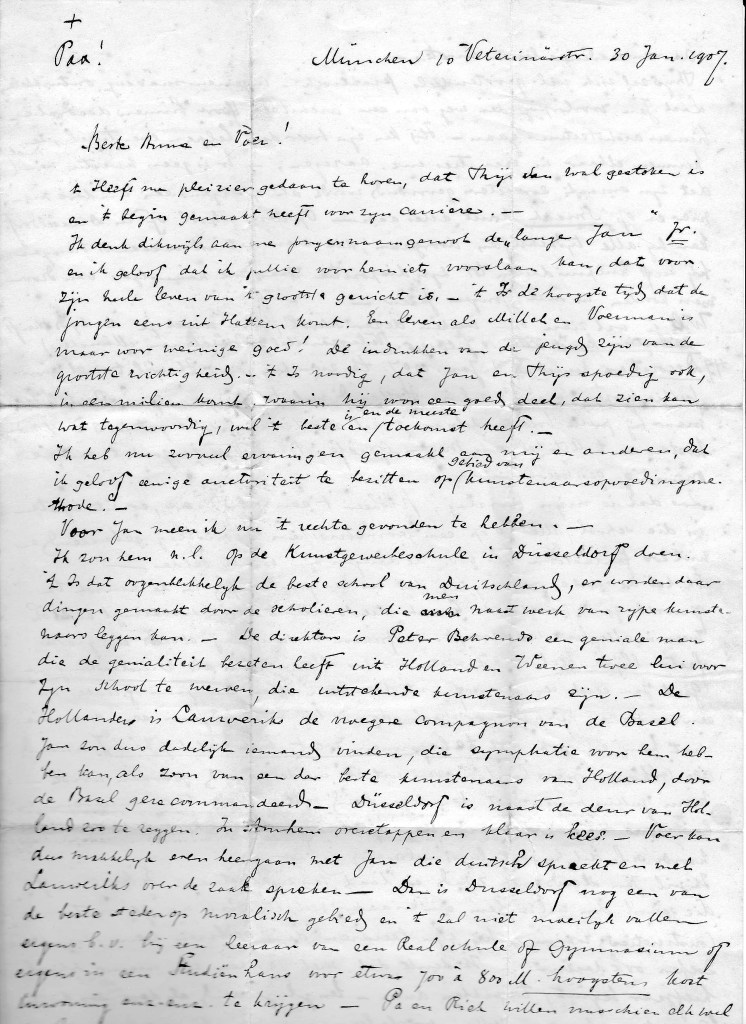 +
Pax!
München 10 Veterinärstr. 30 Jan. 1907.
Beste Anna en Voer!
't Heeft me pleizier gedaan te horen, dat Thijs van wal gestoken is
en 't begin gemaakt heeft voor zijn carrière. —
Ik denk dikwijls aan me jongensnaamgenoot de „lange Jan" Jr.
en ik geloof dat ik jullie voor hem iets voorslaan kan, dat voor
zijn heele leven van 't grootste gewicht is. — 't Is de hoogste tijd dat de
jongen eens uit Hattem komt. Een leven als Millet en Voerman is
maar voor weinige goed! De indrukken van de jeugd zijn van de
grootste wichtigheid. — 't Is noodig, dat Jan en Thijs spoedig ook,
in een milieu komt, waarin hij voor een goed deel, dat zien kan
wat tegenwoordig, wil 't beste is en de meeste toekomst heeft. —
Ik heb nu zooveel ervaringen gemaakt aan mij en anderen, dat
ik geloof eenige auctoriteit te bezitten op gebied van kunstenaarsopvoedingsme-
thode. —
Voor Jan meen ik nu 't rechte gevonden te hebben. —
Ik zou hem n.l. op de Kunstgewerbeschule in Düsseldorf doen.
't Is dat oogenblikkelijk de beste school van Duitschland, er worden daar
dingen gemaakt door de scholieren, die men naast werk van rijpe kunste-
naars leggen kan. — De direktor is Peter Behrends een geniale man
die de genialiteit bezeten heeft uit Holland en Weenen twee lui voor
zijn school te werven, die uitstekende kunstenaars zijn. — De
Hollander is Lauweriks de vroegere compagnon van de Bazel.
Jan zou dus dadelijk iemand vinden, die symphatie voor hem heb-
ben kan, als zoon van een der beste kunstenaars van Holland, door
de Bazel gerecommandeerd — Düsseldorf is naast de deur van Hol-
land zoo te zeggen. In Arnhem overstappen en klaar is kees. — Voer kan
dus makkelijk even heengaan met Jan die duitsch spreekt en met
Lauweriks over de zaak spreken — Dan is Dusseldorf nog een van
de beste steden op moralisch gebied en 't zal niet moeilijk vallen
ergens b.v. bij een leeraar van een Realschule of Gymnasium of
ergens in een Studiën Haus voor etwa 700 à 800 M. hoogstens kost
inwoning te krijgen — Pa en Rich willen misschien elk wel